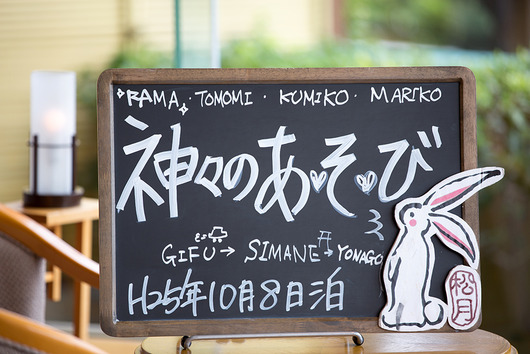 RAMA・TOMOMI・KUMIKO・MARIKO
神々のあそび
GIFU→SIMANE→YONAGO
H25年10月8日泊
松月